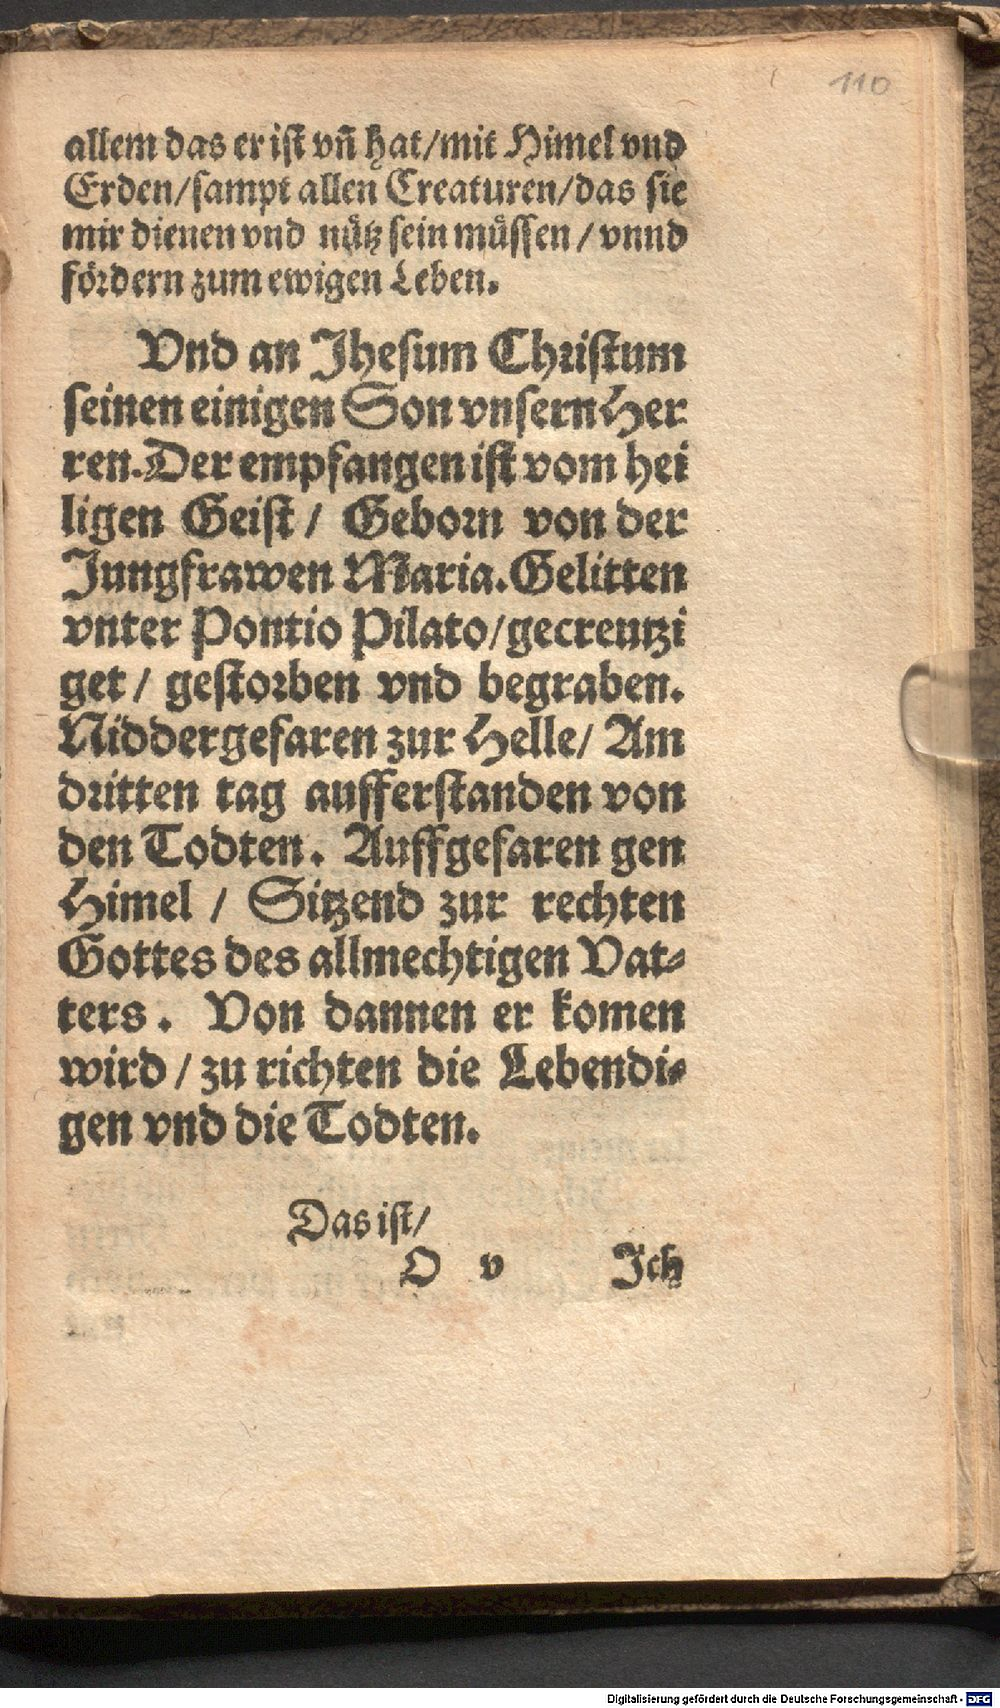 110
allem das er ist vñ hat/mit Himel vnd
Erden/sampt allen Creaturen/das sie
mir dienen vnd nütz sein müssen/vnnd
fördern zum ewigen Leben.
Vnd an Jhesum Christum
seinen einigen Son vnsern Her
ren. Der empfangen ist vom hei
ligen Geist/ Geborn von der
Jungfrawen Maria. Gelitten
vnter Pontio Pilato/gecreutzi
get/ gestorben vnd begraben.
Niddergefaren zur Helle/ Am
dritten tag aufferstanden von
den Todten. Auffgefaren gen
Himel / Sitzend zur rechten
Gottes des allmechtigen Vat⸗
ters. Von dannen er komen
wird/ zu richten die Lebendi⸗
gen vnd die Todten.
Das ist/
O v Jch
Digitalisierung gefördert durch die Deutsche Forschungsgemeinschaft - DFG